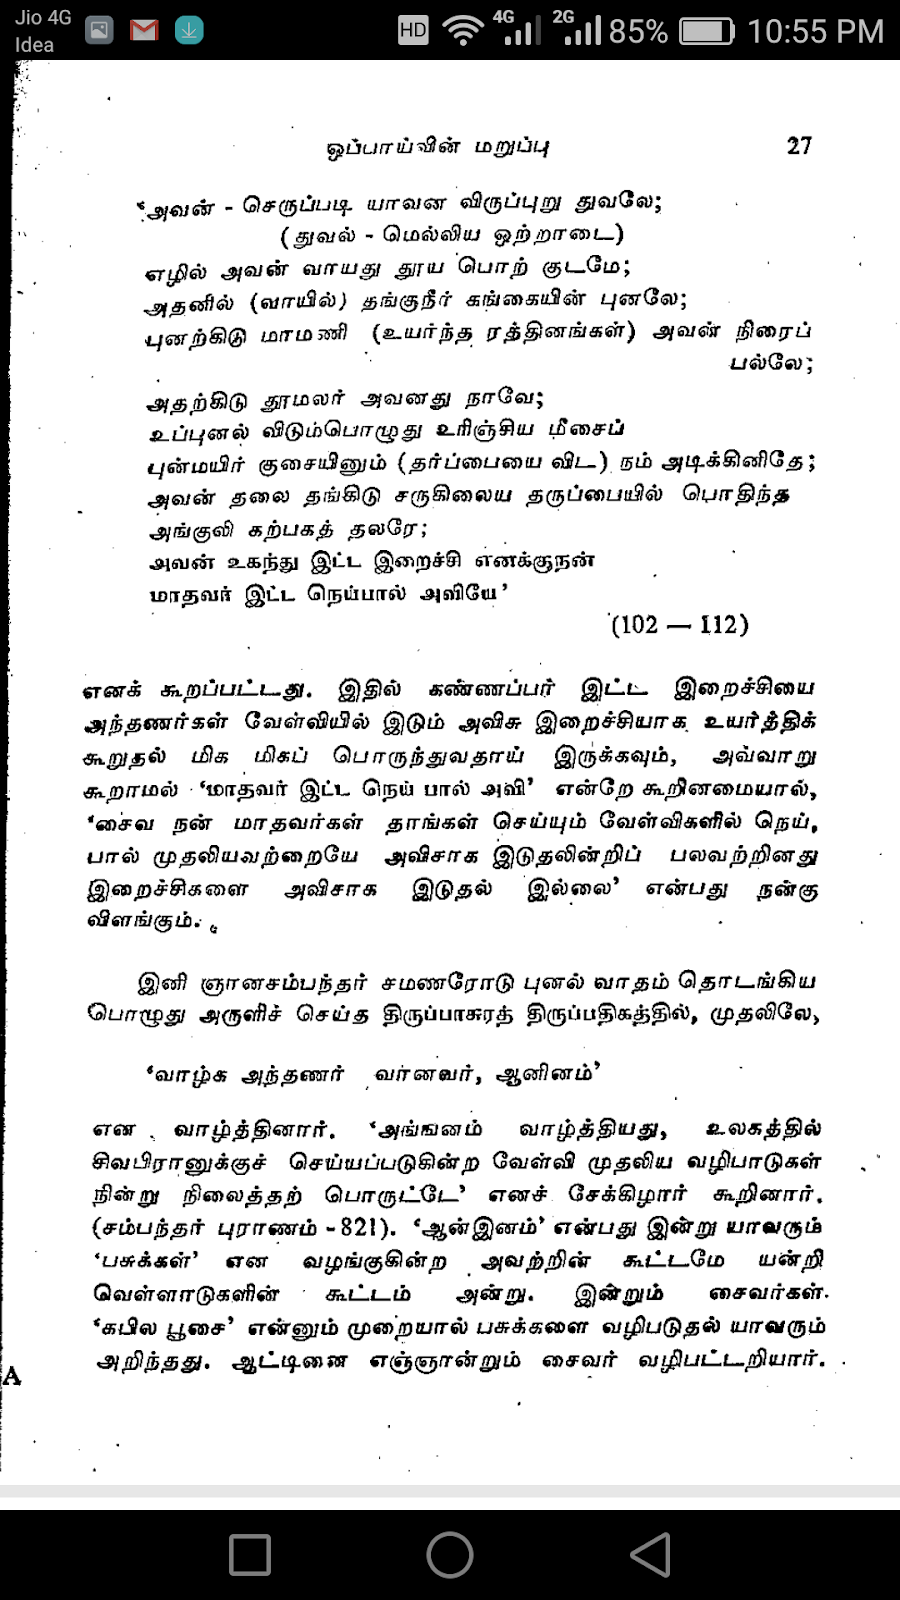 Jio 4G
Idea
HD 4G 2G 85% 10:55 PM
ஒப்பாய்வின் மறுப்பு 27
‘அவன் - செருப்படி யாவன விருப்புறு துவலே;
(துவல் - மெல்லிய ஒற்றாடை)
எழில் அவன் வாயது தூய பொற் குடமே;
அதனில் (வாயில்) தங்குநீர் கங்கையின் புனலே;
புனற்கிடு மாமணி (உயர்ந்த ரத்தினங்கள்) அவன் நிரைப்
பல்லே;
அதற்கிடு தூமலர் அவனது நாவே;
உப்புனல் விடும்பொழுது உரிஞ்சிய மீசைப்
புன்மயிர் குசையினும் (தர்ப்பையை விட) நம் அடிக்கினிதே;
அவன் தலை தங்கிடு சருகிலைய தருப்பையில் பொதிந்த
அங்குலி கற்பகத் தலரே;
அவன் உகந்து இட்ட இறைச்சி எனக்குநன்
மாதவர் இட்ட நெய்பால் அவியே’
(102 — 112)
எனக் கூறப்பட்டது. இதில் கண்ணப்பர் இட்ட இறைச்சியை
அந்தணர்கள் வேள்வியில் இடும் அவிசு இறைச்சியாக உயர்த்திக்
கூறுதல் மிக மிகப் பொருந்துவதாய் இருக்கவும், அவ்வாறு
கூறாமல் ‘மாதவர் இட்ட நெய் பால் அவி’ என்றே கூறினமையால்,
‘சைவ நன் மாதவர்கள் தாங்கள் செய்யும் வேள்விகளில் நெய்,
பால் முதலியவற்றையே அவிசாக இடுதலின்றிப் பலவற்றினது
இறைச்சிகளை அவிசாக இடுதல் இல்லை’ என்பது நன்கு
விளங்கும்.
இனி ஞானசம்பந்தர் சமணரோடு புனல் வாதம் தொடங்கிய
பொழுது அருளிச் செய்த திருப்பாசுரத் திருப்பதிகத்தில், முதலிலே,
‘வாழ்க அந்தணர் வானவர், ஆனினம்’
என வாழ்த்தினார். ‘அங்ஙனம் வாழ்த்தியது, உலகத்தில்
சிவபிரானுக்குச் செய்யப்படுகின்ற வேள்வி முதலிய வழிபாடுகள்
நின்று நிலைத்தற் பொருட்டே’ எனச் சேக்கிழார் கூறினார்.
(சம்பந்தர் புராணம் - 821). ‘ஆன்இனம்’ என்பது இன்று யாவரும்
‘பசுக்கள்’ என வழங்குகின்ற அவற்றின் கூட்டமே யன்றி
வெள்ளாடுகளின் கூட்டம் அன்று. இன்றும் சைவர்கள்
‘கபில பூசை’ என்னும் முறையால் பசுக்களை வழிபடுதல் யாவரும்
அறிந்தது. ஆட்டினை எஞ்ஞான்றும் சைவர் வழிபட்டறியார்.
A